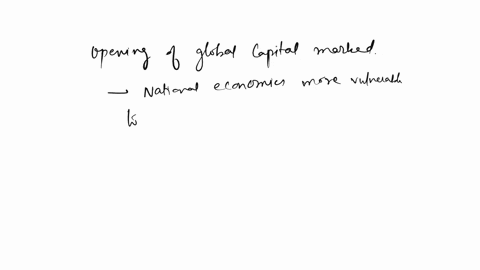 opening of global capital marked.
→ National economics more vulnerable
to